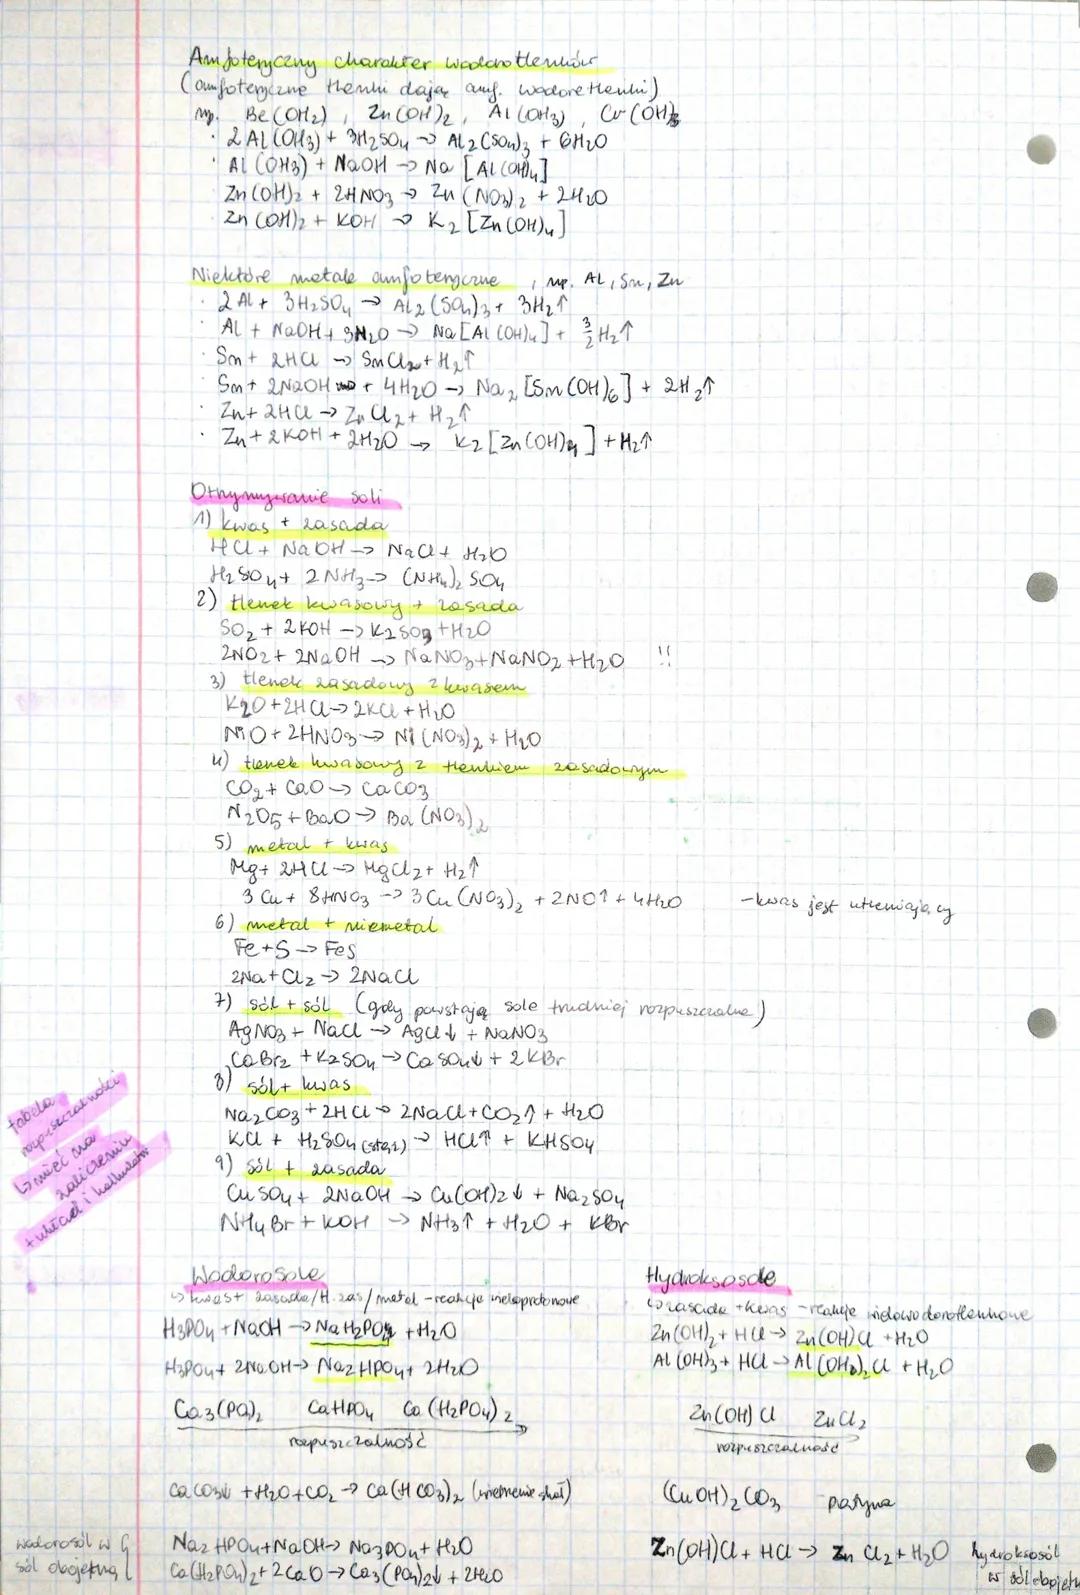 Amfoteryczny charakter wodorotlenków
(amfoteryczne tlenki dają amf. wodorotlenki)
np. Be(OH2), Zn(OH)2, Al(OH3), Cr(OH)3
· 2Al(OH3) + 3H2SO4 → Al2(SO4)3 + 6H2O
· Al(OH3) + NaOH → Na[Al(OH)4]
Zn(OH)2 + 2HNO3 → Zn(NO3)2 + 2H2O
· Zn(OH)2 + KOH → K2[Zn(OH)4]
Niektóre metale amfoteryczne, np. Al, Sn, Zn
· 2Al + 3H2SO4 → Al2(SO4)3 + 3H2↑
· Al + NaOH + 3H2O → Na[Al(OH)4] + 3/2 H2↑
· Sn + 2HCl → SnCl2 + H2↑
· Sn + 2NaOH + 4H2O → Na2[Sn(OH)6] + 2H2↑
· Zn + 2HCl → ZnCl2 + H2↑
· Zn + 2KOH + 2H2O → K2[Zn(OH)4] + H2↑
Otrzymywanie soli
1) kwas + zasada
HCl + NaOH → NaCl + H2O
H2SO4 + 2NH3 → (NH4)2SO4
2) tlenek kwasowy + zasada
SO2 + 2KOH → K2SO3 + H2O
2NO2 + 2NaOH → NaNO3 + NaNO2 + H2O !!
3) tlenek zasadowy z kwasem
K2O + 2HCl → 2KCl + H2O
NiO + 2HNO3 → Ni(NO3)2 + H2O
4) tlenek kwasowy z tlenkiem zasadowym
CO2 + CaO → CaCO3
N2O5 + BaO → Ba(NO3)2
5) metal + kwas
Mg + 2HCl → MgCl2 + H2↑
3Cu + 8HNO3 → 3Cu(NO3)2 + 2NO↑ + 4H2O - kwas jest utleniający
6) metal + niemetal
Fe + S → FeS
2Na + Cl2 → 2NaCl
7) sól + sól (gdy powstają sole trudniej rozpuszczalne)
AgNO3 + NaCl → AgCl↓ + NaNO3
CaBr2 + K2SO4 → CaSO4↓ + 2KBr
8) sól + kwas
Na2CO3 + 2HCl → 2NaCl + CO2↑ + H2O
KCl + H2SO4 (stęż) → HCl↑ + KHSO4
9) sól + zasada
CuSO4 + 2NaOH → Cu(OH)2↓ + Na2SO4
NH4Br + KOH → NH3↑ + H2O + KBr
tabela
rozpuszczalności
↳ mieć na
zaliczeniu
+ układ i kalkulator
Wodorosole
↳ kwas + zasada/tl. zas/metal - reakcje wieloprotonowe
H3PO4 + NaOH → NaH2PO4 + H2O
H3PO4 + 2NaOH → Na2HPO4 + 2H2O
Ca3(PO4)2 CaHPO4 Ca(H2PO4)2
rozpuszczalność
CaCO3↓ + H2O + CO2 → Ca(HCO3)2 (wietrzenie skał)
wodorosól w
sól obojętną
Na2HPO4 + NaOH → Na3PO4 + H2O
Ca(H2PO4)2 + 2CaO → Ca3(PO4)2↓ + 2H2O
Hydroksosole
↳ zasada + kwas - reakcje widowodorotlenkowe
Zn(OH)2 + HCl → Zn(OH)Cl + H2O
Al(OH)3 + HCl → Al(OH)2Cl + H2O
Zn(OH)Cl ZnCl2
rozpuszczalność
(CuOH)2CO3 patyna
Zn(OH)Cl + HCl → ZnCl2 + H2O
hydroksosól
w sól obojętn